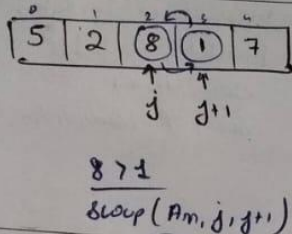 0 1 2 3 4
5 2 8 1 7
j j+1
8 > 1
Swap (Arr, j, j+1)